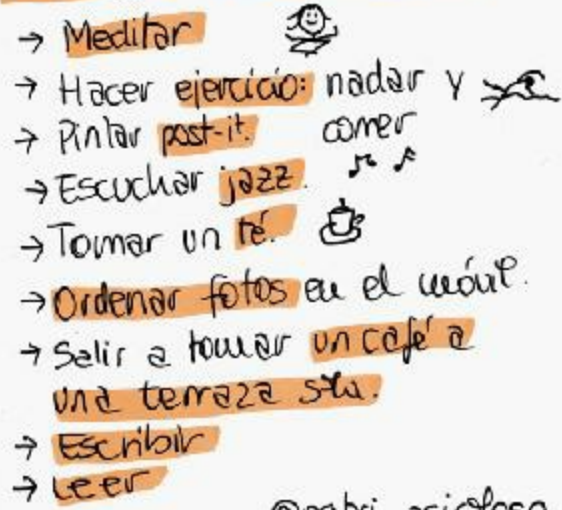 → Meditar
→ Hacer ejercicio: nadar y
→ Pintar post-it. comer
→ Escuchar jazz.
→ Tomar un té.
→ Ordenar fotos en el móvil.
→ Salir a tomar un café a
una terraza sola.
→ Escribir
→ Leer